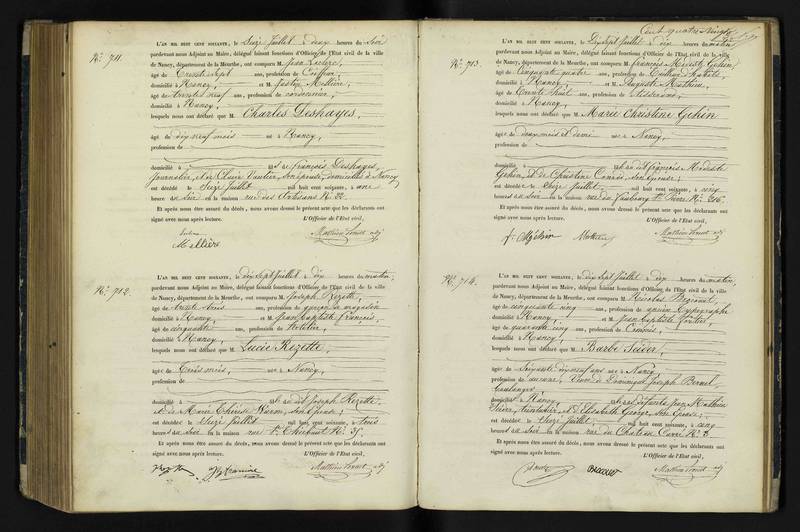 Cent quatre vingt
N.º 711.
L'AN MIL HUIT CENT SOIXANTE, le Seize Juillet à deux heures du Soir
pardevant nous Adjoint au Maire, délégué faisant fonctions d'Officier de l'État civil de la ville
de Nancy, département de la Meurthe, ont comparu M. Jean Leclerc,
âgé de Trente Sept ans, profession de Coiffeur,
domicilié à Nancy, et M. Justin Mellière,
âgé de trente neuf ans, profession de cordonnier,
domicilié à Nancy,
lesquels nous ont déclaré que M. Charles Deshayes,
âgé de dix neuf mois né à Nancy,
profession de
domicilié à fils de François Deshayes,
Journalier, et de Claire Vautier, son épouse, domiciliés à Nancy
est décédé le Seize Juillet mil huit cent soixante, à une
heure du Soir en la maison rue des Artisans N.º 22.
Et après nous être assuré du décès, nous avons dressé le présent acte que les déclarants ont
signé avec nous après lecture. L'Officier de l'État civil,
Mellière
N.º 712.
L'AN MIL HUIT CENT SOIXANTE, le dix Sept Juillet à dix heures du matin,
pardevant nous Adjoint au Maire, délégué faisant fonctions d'Officier de l'État civil de la ville
de Nancy, département de la Meurthe, ont comparu M. Joseph Rezette,
âgé de trente trois ans, profession de garçon de magasin
domicilié à Nancy, et M. Jean Baptiste François,
âgé de cinquante ans, profession de hôtelier,
domicilié à Nancy,
lesquels nous ont déclaré que M. Lucie Rezette,
âgée de Trois mois, née à Nancy,
profession de
domicilié à fille dudit Joseph Rezette,
& de Marie Thérèse Warin, son épouse;
est décédée le Seize Juillet mil huit cent soixante, à trois
heures du Soir en la maison rue S.t Thiébaut N.º 35.
Et après nous être assuré du décès, nous avons dressé le présent acte que les déclarants ont
signé avec nous après lecture. L'Officier de l'État civil,
N.º 713.
L'AN MIL HUIT CENT SOIXANTE, le Dix Sept Juillet à dix heures du matin
pardevant nous Adjoint au Maire, délégué faisant fonctions d'Officier de l'État civil de la ville
de Nancy, département de la Meurthe, ont comparu M. François Modeste Gehin,
âgé de Cinquante quatre ans, profession de
domicilié à Nancy, et M. Auguste Mathieu,
âgé de trente huit ans, profession de
domicilié à Nancy,
lesquels nous ont déclaré que M. Marie Christine Gehin
âgée de deux mois et demi née à Nancy,
profession de
domicilié à fille dudit François Modeste
Gehin, & de Christine Conrée, son épouse;
est décédée le Seize Juillet mil huit cent soixante, à cinq
heures du Soir en la maison rue du Faubourg S.t Pierre N.º 216.
Et après nous être assuré du décès, nous avons dressé le présent acte que les déclarants ont
signé avec nous après lecture. L'Officier de l'État civil,
N.º 714.
L'AN MIL HUIT CENT SOIXANTE, le dix Sept Juillet à dix heures du matin,
pardevant nous Adjoint au Maire, délégué faisant fonctions d'Officier de l'État civil de la ville
de Nancy, département de la Meurthe, ont comparu M. Nicolas
âgé de cinquante cinq ans, profession de ancien typographe
domicilié à Nancy, et M. Jean Baptiste
âgé de quarante cinq ans, profession de Commis,
domicilié à Nancy,
lesquels nous ont déclaré que M. Barbe
âgée de Soixante dix neuf ans née à Nancy
profession de aucune, Veuve de Dominique Joseph
Boulanger
domiciliée à Nancy, fille des défunts Jean Mathieu
& d'Élisabeth George, son épouse;
est décédée le Seize Juillet mil huit cent soixante, à cinq
heures du Soir en la maison rue du Château Carré N.º 3
Et après nous être assuré du décès, nous avons dressé le présent acte que les déclarants ont
signé avec nous après lecture. L'Officier de l'État civil,